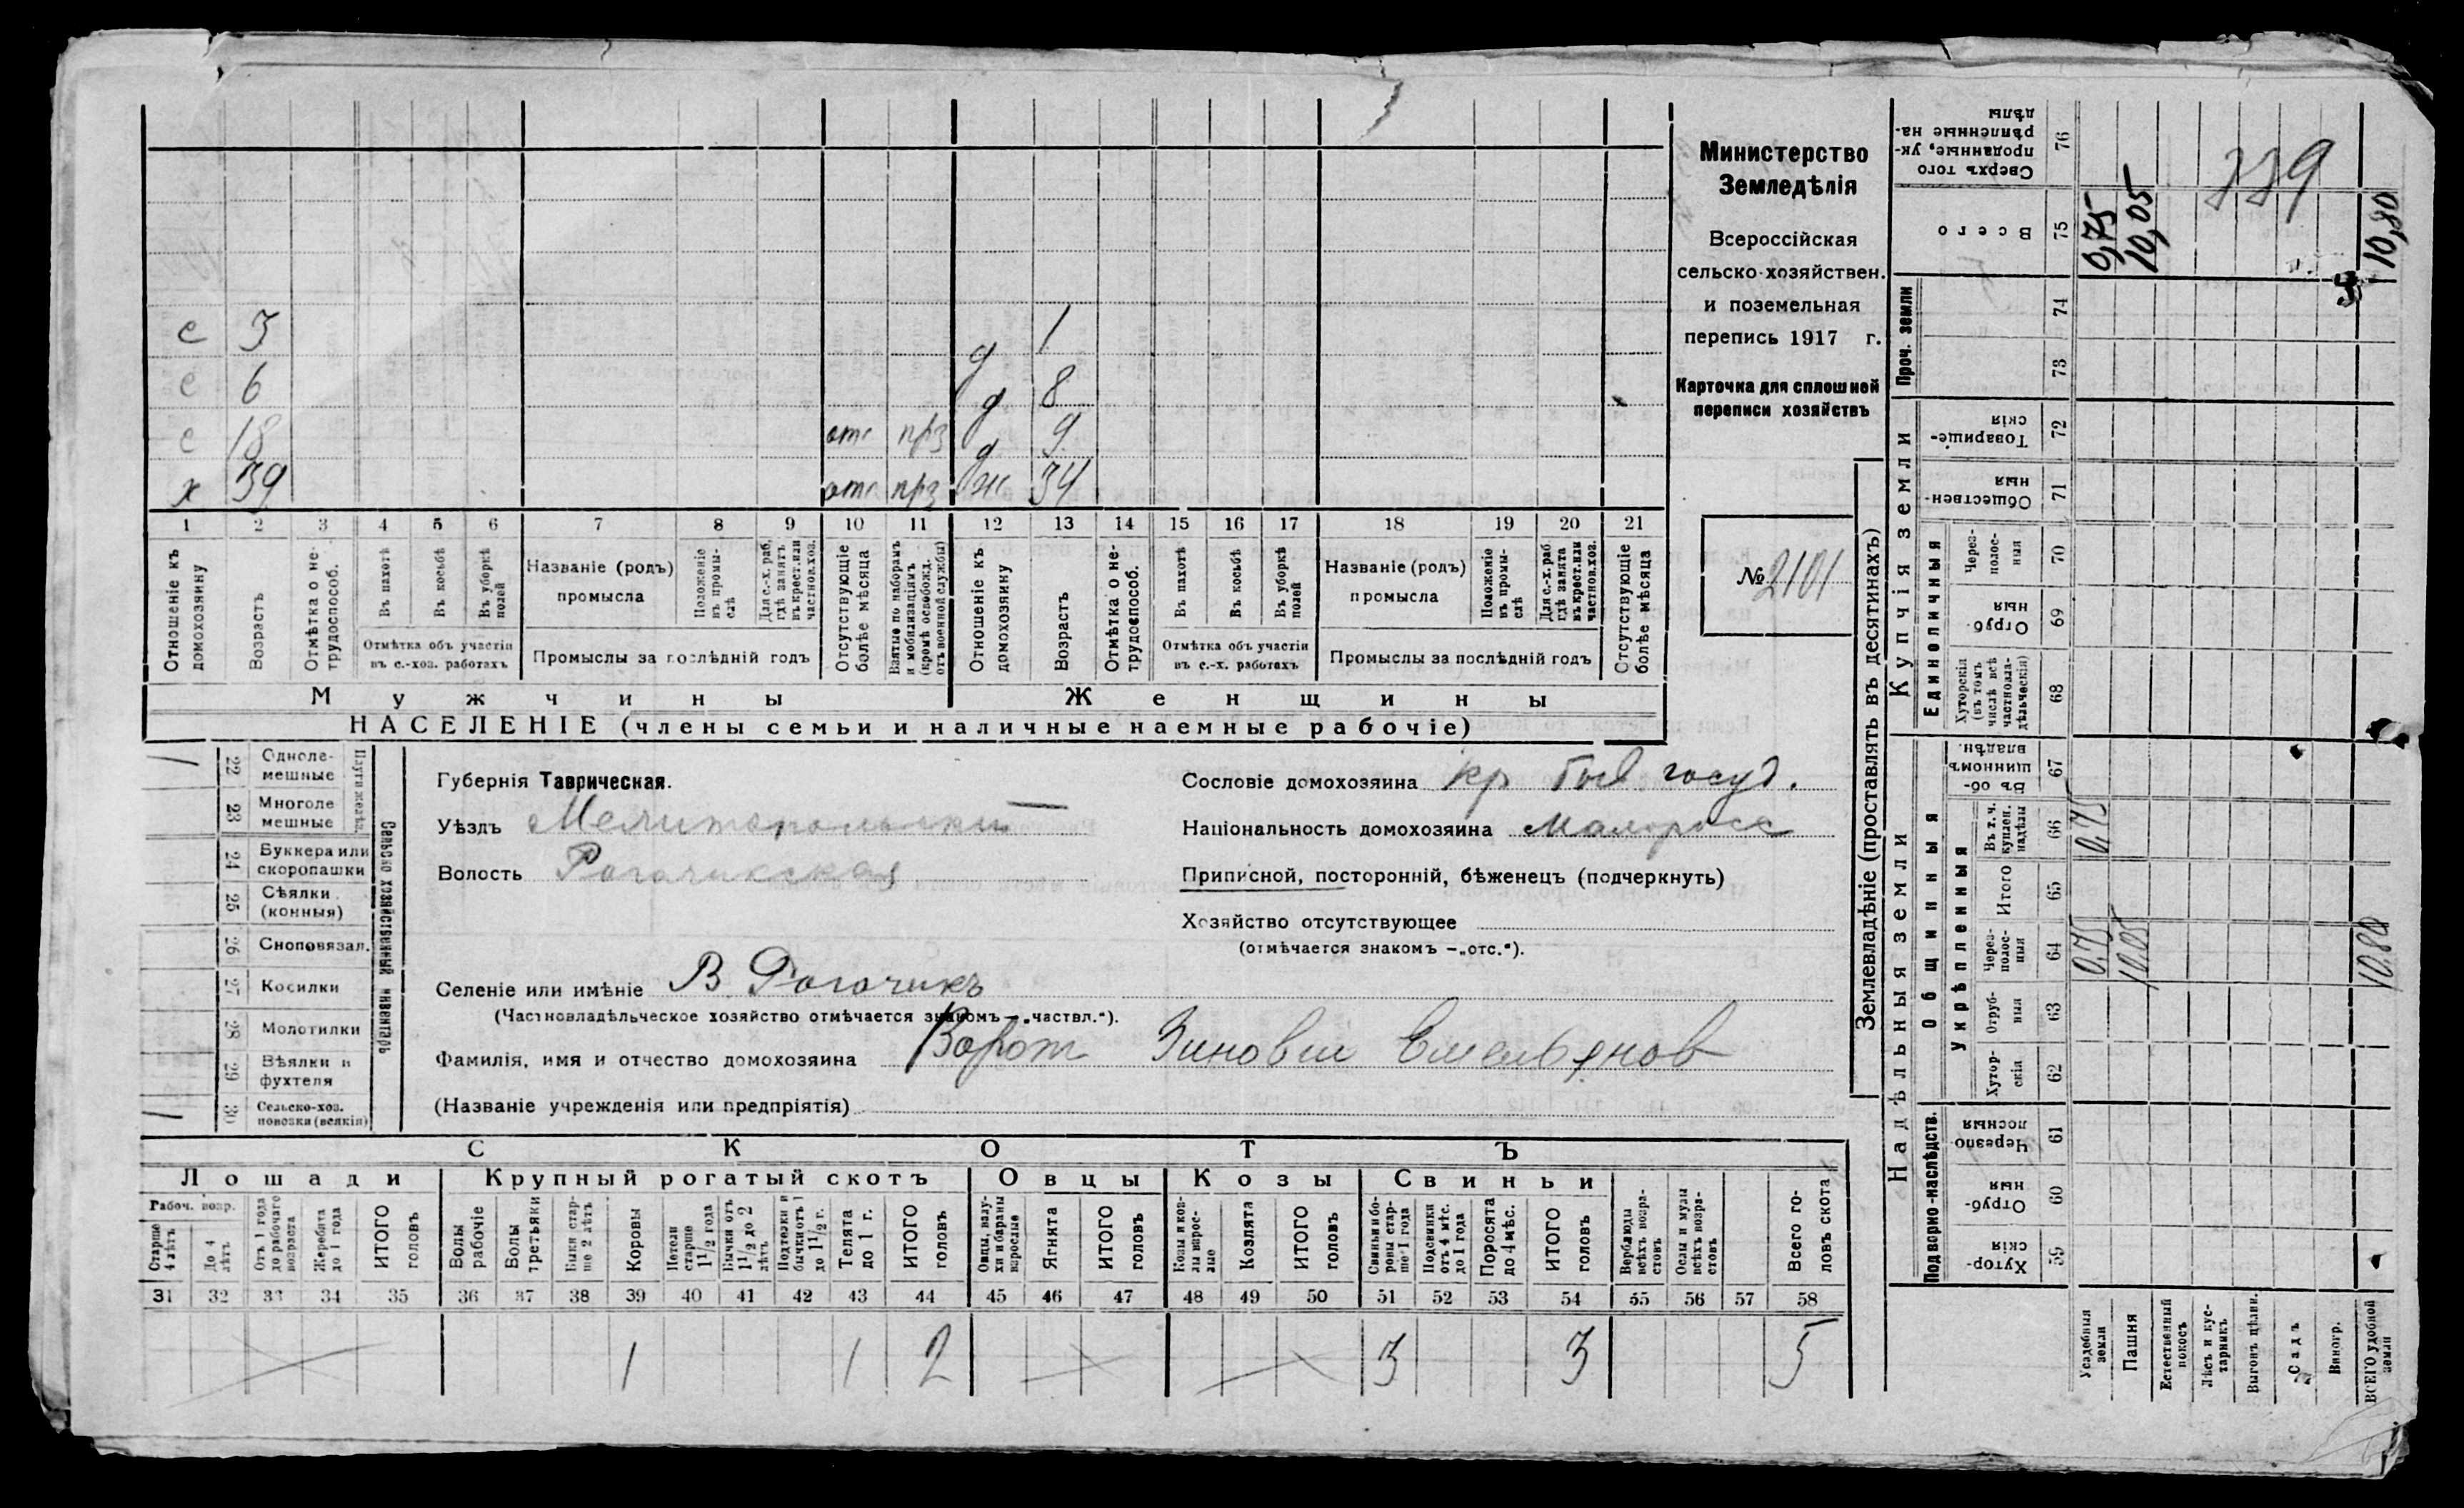 с 3 д 1
с 6 д 8
с 18 отс прз д 9
х 39 отс прз ж 34
1 2 3 4 5 6 7 8 9 10 11 12 13 14 15 16 17 18 19 20 21
Отношеніе къ домохозяину
Возрастъ
Отмѣтка о не-трудоспособ.
Въ пахотѣ
Въ косьбѣ
Въ уборкѣ полей
Отмѣтка объ участіи въ с.-хоз. работахъ
Названіе (родъ) промысла
Положеніе въ промы-слѣ
Для с.-х. раб. гдѣ занятъ въ крест. или частнов. хоз.
Промыслы за послѣдній годъ
Отсутствующіе болѣе мѣсяца
Взятые по наборамъ и мобилизаціямъ (кромѣ освобожд. отъ военной службы)
Отношеніе къ домохозяину
Возрастъ
Отмѣтка о не-трудоспособ.
Въ пахотѣ
Въ косьбѣ
Въ уборкѣ полей
Отмѣтка объ участіи въ с.-х. работахъ
Названіе (родъ) промысла
Положеніе въ промы-слѣ
Для с.-х. раб гдѣ занята въ крест. или частнов. хоз.
Промыслы за послѣдній годъ
Отсутствующіе болѣе мѣсяца
Мужчины Женщины
НАСЕЛЕНІЕ (члены семьи и наличные наемные рабочіе)
Министерство
Земледѣлія
Всероссійская
сельско-хозяйствен.
и поземельная
перепись 1917 г.
Карточка для сплошной
переписи хозяйствъ
№ 2101
22 Одноле-мешные
23 Многоле мешные
24 Буккера или скоропашки
25 Сѣялки (конныя)
26 Сноповязал.
27 Косилки
28 Молотилки
29 Вѣялки и фухтеля
30 Сельско-хоз. повозки (всякія)
Сельско хозяйственный инвентарь
Губернія Таврическая.
Уѣздъ Мелитопольскій
Волость Рогачикская
Селеніе или имѣніе В. Рогачикъ
(Частновладѣльческое хозяйство отмѣчается знакомъ — „частвл.“).
Фамилія, имя и отчество домохозяина Ворот Зиновій Емельянов
(Названіе учрежденія или предпріятія)
Сословіе домохозяина кр быв госуд.
Національность домохозяина Малоросс
Приписной, посторонній, бѣженецъ (подчеркнуть)
Хозяйство отсутствующее
(отмѣчается знакомъ — „отс.“).
СКОТЪ
Лошади Крупный рогатый скотъ Овцы Козы Свиньи
Рабоч. возр.
Старше 4 лѣтъ
До 4 лѣтъ
Отъ 1 года до рабочаго возраста
Жеребята до 1 года
ИТОГО головъ
Волы рабочіе
Волы третьяки
Быки стар-ше 2 лѣтъ
Коровы
Нетели старше 1 1/2 года
Бычки отъ 1 1/2 до 2 лѣтъ
Подтелки и бычки отъ 1 до 1 1/2 г.
Телята до 1 г.
ИТОГО головъ
Овцы, валу-хи и бараны взрослые
Ягнята
ИТОГО головъ
Козы и коз-лы взрос-лые
Козлята
ИТОГО головъ
Свиньи и бо-ровы стар-ше 1 года
Подсвинки отъ 4 мѣс. до 1 года
Поросята до 4 мѣс.
ИТОГО головъ
Верблюды всѣхъ возра-стовъ
Ослы и мулы всѣхъ возра-стовъ
Всего го-ловъ скота
31 32 33 34 35 36 37 38 39 40 41 42 43 44 45 46 47 48 49 50 51 52 53 54 55 56 57 58
1 1 2 3 3 5
Землевладѣніе (проставлять въ десятинахъ)
Надѣльныя земли
Купчія земли
Подворно-наслѣдств.
Общинныя
Укрѣпленныя
Единоличныя
Проч. земли
Сверхъ того проданные, ук-рѣпленные на-дѣлы 76
Всего 75 0,75 10,05 10,80
74
73
Товарище-скія 72
Обществен-ныя 71
Через-полос-ныя 70
Отруб-ныя 69
Хуторскія (въ томъ числѣ всѣ частновла-дѣльческія) 68
Въ об-щинномъ владѣн. 67
Въ т. ч. куплен. надѣлы 66 0,75
Итого 65
Через-полос-ныя 64 0,75 10,05 10.80
Отруб-ныя 63
Хутор-скія 62
Черезпо лосныя 61
Отруб-ныя 60
Хутор-скія 59
Усадебныя земли
Пашня
Естественный покосъ
Лѣсъ и кус-тарникъ
Выгонъ цѣлин.
Садъ
Виногр.
ВСЕГО удобной земли